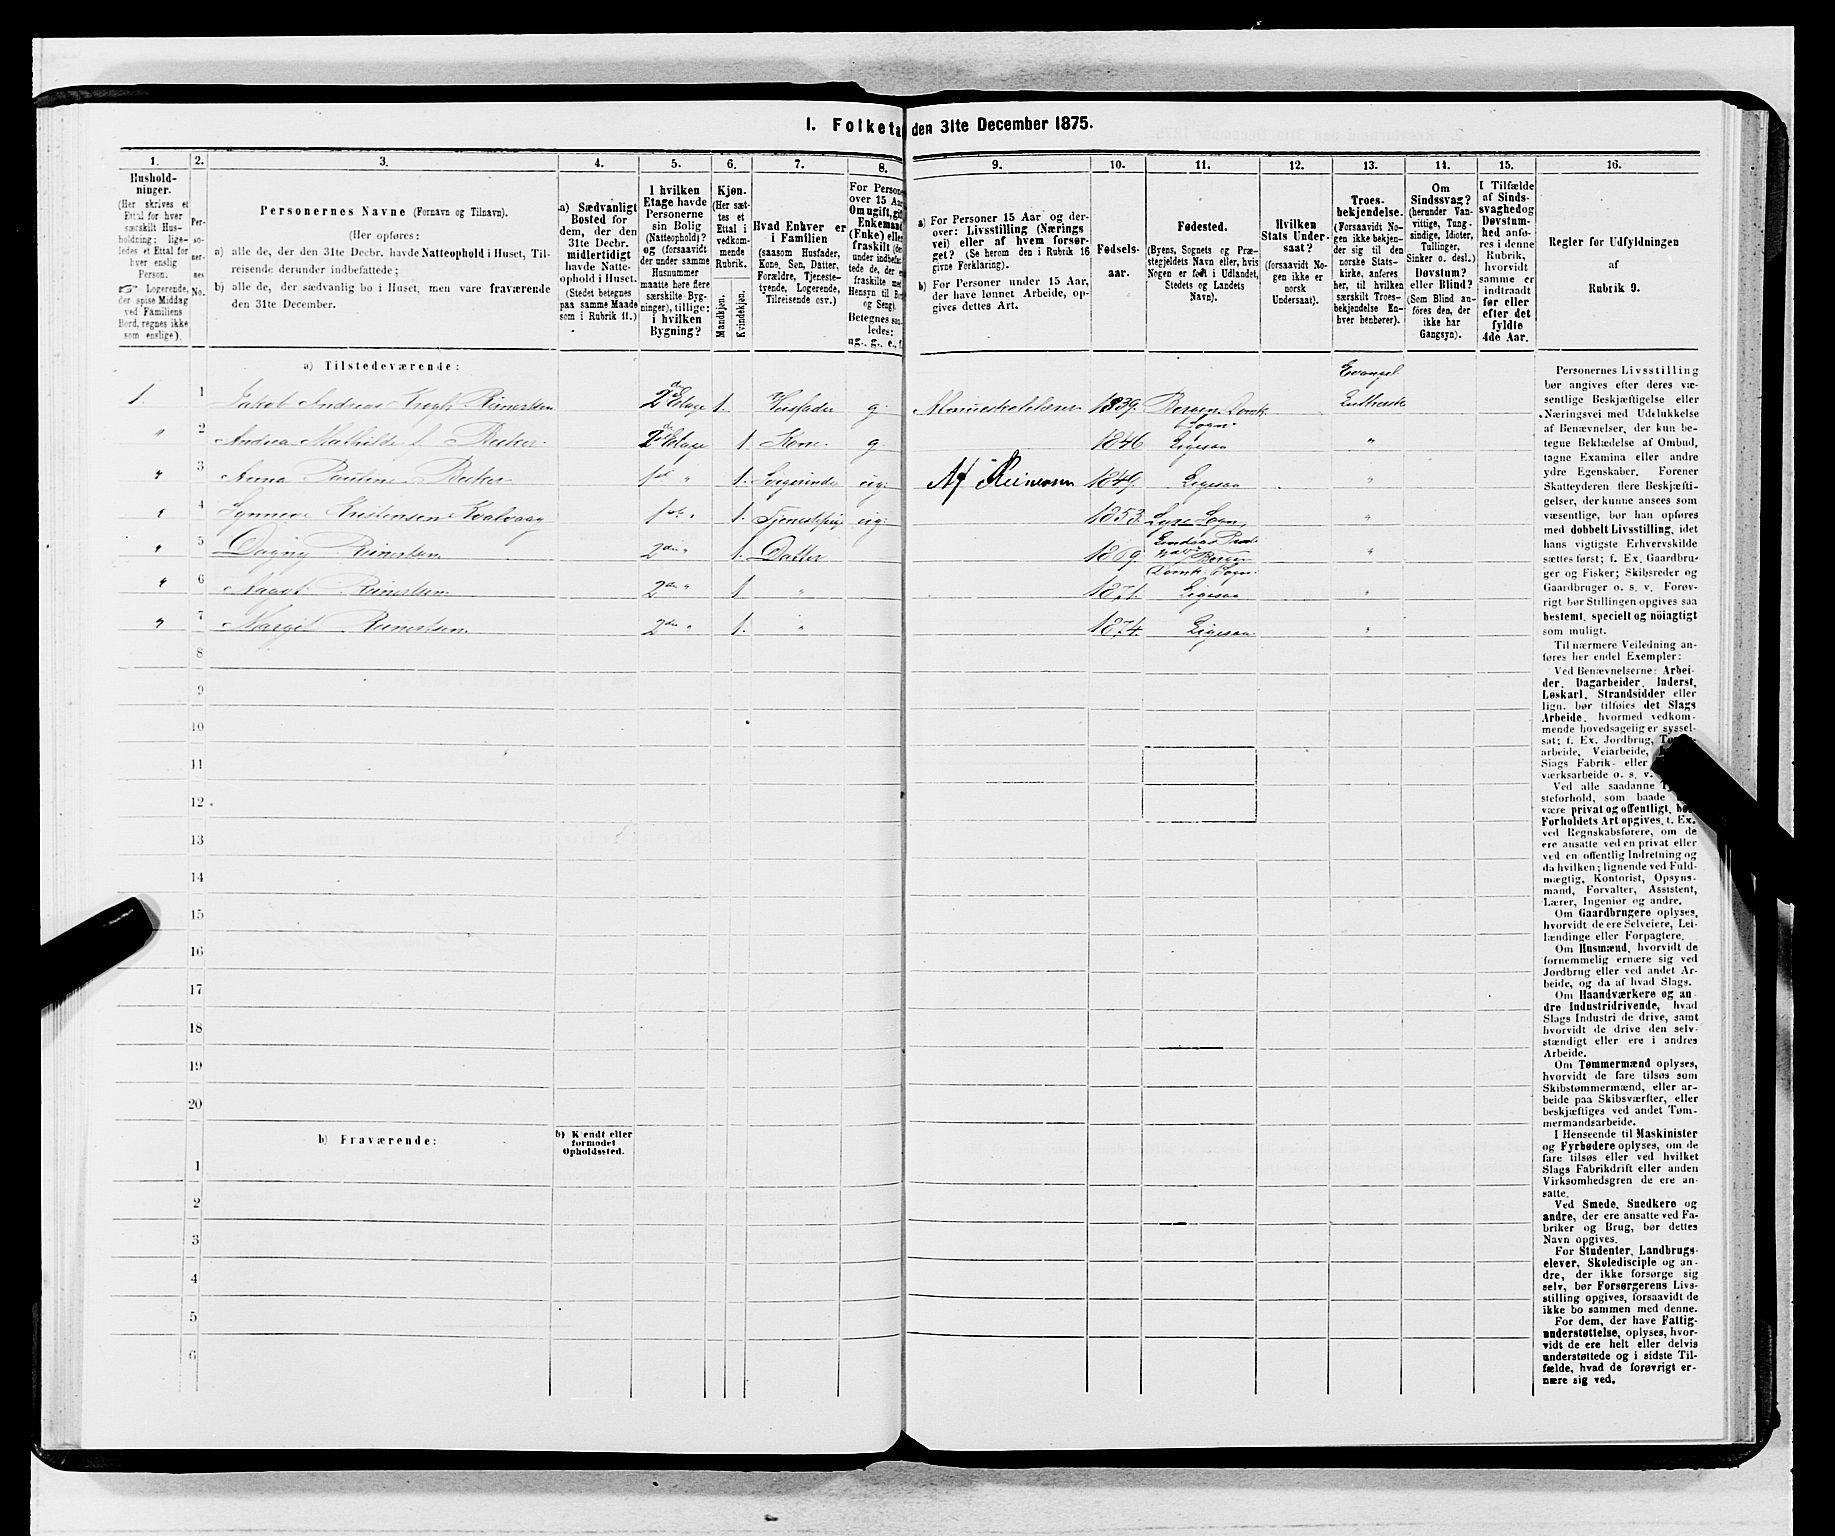 1. Folketa den 31te December 1875.
1. 2. 3. 4. 5. 6. 7. 8. 9. 10. 11. 12. 13. 14. 15. 16.
Hushold-
ninger.
(Her skrives et
Ettal for hver
særskilt Hus-
holdning; lige-
ledes et Ettal for
hver enslig
Person.
☞ Logerende,
der spise Middag
ved Familiens
Bord, regnes ikke
som enslige).
Per-
so-
ner-
nes
No.
Personernes Navne (Fornavn og Tilnavn).
(Her opføres:
a) alle de, der den 31te Decbr. havde Natteophold i Huset, Til-
reisende derunder indbefattede;
b) alle de, der sædvanlig bo i Huset, men vare fraværende
den 31te December.
a) Sædvanligt
Bosted for
dem, der den
31te Decbr.
midlertidigt
havde Natte-
ophold i Huset.
(Stedet betegnes
paa samme Maade
som i Rubrik 11.)
I hvilken
Etage havde
Personerne
sin Bolig
(Natteophold)?
og (forsaavidt
der under samme
Husnummer
maatte høre flere
særskilte Byg-
ninger), tillige:
i hvilken
Bygning?
Kjøn.
(Her sæt-
tes et
Ettal i
vedkom-
mende
Rubrik.
Mandkjøn.
Kvindekjøn.
Hvad Enhver er
i Familien
(saasom Husfader,
Kone, Søn, Datter,
Forældre, Tjeneste-
tyende, Logerende,
Tilreisende osv.)
For Persone
over 15 Aar
Om ugift, gift
Enkemand
(Enke) elle
fraskilt (de
under indbefat
tede de, der e
fraskilte med
Hensyn til Bo
og Seng).
Betegnes saa
ledes:
ug., g., e., f.
a) For Personer 15 Aar og der-
over: Livsstilling (Nærings
vei) eller af hvem forsør-
get? (Se herom den i Rubrik 16
givne Forklaring).
b) For Personer under 15 Aar,
der have lønnet Arbeide, op-
gives dettes Art.
Fødsels-
aar.
Fødested.
(Byens, Sognets og Præ-
stegjeldets Navn eller, hvis
Nogen er født i Udlandet,
Stedets og Landets
Navn).
Hvilken
Stats Under-
saat?
(forsaavidt No-
gen ikke er
norsk
Undersaat).
Troes-
bekjendelse.
(Forsaavidt No-
gen ikke bekjen-
der sig til den
norske Stats-
kirke, anføres
her, til hvilken
særskilt Troes-
bekjendelse En-
hver henhører).
Om
Sindssvag?
(herunder Van-
vittige, Tung-
sindige, Idioter,
Tullinger,
Sinker o. desl.)
Døvstum?
eller Blind?
(Som Blind an-
føres den, der
ikke har
Gangsyn).
I Tilfælde
af Sinds-
svaghed og
Døvstum-
hed anfø-
res i denne
Rubrik,
hvorvidt
samme er
indtraadt
før eller
efter det
fyldte
4de Aar.
Regler for Udfyldningen
af
Rubrik 9.
a) Tilstedeværende:
Evangel
1. 1 Jakob Andreas Krogh Reinertsen 2den Etage 1. Husfader g. 1839. Bergen Domk. Lutherske
Sogn
" 2 Andrea Mathilde f. Becker 2den Etage 1 Kone g 1846 Ligesaa "
" 3 Anna Pauline Becker 1ste " 1. ug. Af 1849. Ligesaa "
" 4 Synneve Kristensen Kvalvaag 1ste " 1. Tjenestepige ug. 1853. Sogn "
" 5 Dagny Reinertsen 2den " 1. Datter 1869. Bergen "
Domk. Sogn
" 6 Aagot Reinertsen 2den " 1 " 1871. Ligesaa "
" 7 Margit Reinertsen 2den " 1. " 1874. Ligesaa "
8
9
10
11
12
13
14
15
16
17
18
19
20
b) Fraværende:
b) Kjendt eller
formodet
Opholdssted.
1
2
3
4
5
6
Personernes Livsstilling
bør angives efter deres væ-
sentlige Beskjæftigelse eller
Næringsvei med Udelukkelse
af Benævnelser, der kun be-
tegne Beklædelse af Ombud,
tagne Examina eller andre
ydre Egenskaber. Forener
Skatteyderen flere Beskjæfti-
gelser, der kunne ansees som
væsentlige, bør han opføres
med dobbelt Livsstilling, idet
hans vigtigste Erhvervskilde
sættes først; f. Ex. Gaardbru-
ger og Fisker; Skibsreder og
Gaardbruger o. s. v. Forøv-
rigt bør Stillingen opgives saa
bestemt, specielt og nöiagtigt
som muligt.
Til nærmere Veiledning an-
føres her endel Exempler:
Ved Benævnelserne: Arbei-
der, Dagarbeider, Inderst,
Løskarl, Strandsidder eller
lign. bør tilføies det Slags
Arbeide, hvormed vedkom-
mende hovedsagelig er syssel-
sat; f. Ex. Jordbrug,
arbeide, Veiarbeide,
Slags Fabrik- eller
værksarbeide o. s. v.
Ved alle saadanne
steforhold, som baade
være privat og offentligt, bør
Forholdets Art opgives, t. Ex.
ved Regnskabsførere, om de
ere ansatte ved en privat eller
ved en offentlig Indretning og
da hvilken; lignende ved Fuld-
mægtig, Kontorist, Opsyns-
mand, Forvalter, Assistent,
Lærer, Ingeniør og andre.
Om Gaardbrugere oplyses,
hvorvidt de ere Selveiere, Lei-
lændinge eller Forpagtere.
Om Husmænd, hvorvidt de
fornemmelig ernære sig ved
Jordbrug eller ved andet Ar-
beide, og da af hvad Slags.
Om Haandværkere og an-
dre Industridrivende, hvad
Slags Industri de drive, samt
hvorvidt de drive den selv-
stændigt eller ere i andres
Arbeide.
Om Tømmermænd oplyses,
hvorvidt de fare tilsøs som
Skibstømmermænd, eller ar-
beide paa Skibsværfter, eller
beskjæftiges ved andet Tøm-
mermandsarbeide.
I Henseende til Maskinister
og Fyrbødere oplyses, om de
fare tilsøs eller ved hvilket
Slags Fabrikdrift eller anden
Virksomhedsgren de ere an-
satte.
Ved Smede, Snedkere og
andre, der ere ansatte ved Fa-
briker og Brug, bør dettes
Navn opgives.
For Studenter, Landbrugs-
elever, Skoledisciple og an-
dre, der ikke forsørge sig
selv, bør Forsørgerens Livs-
stilling opgives, forsaavidt de
ikke bo sammen med denne.
For dem, der have Fattig-
understøttelse, oplyses, hvor-
vidt de ere helt eller delvis
understøttede og i sidste Til-
fælde, hvad de forøvrigt er-
nære sig ved.